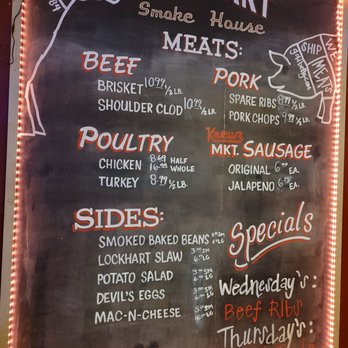 Smoke House
MEATS:
BEEF
BRISKET 10.99 1/2 LB.
SHOULDER CLOD 10.99 1/2 LB.
PORK
SPARE RIBS 8.99 1/2 LB.
PORK CHOPS 9.99 1/2 LB.
WE
SHIP
MEATS
POULTRY
CHICKEN 8.49 HALF
16.99 WHOLE
TURKEY 8.99 1/2 LB.
Kreuz
MKT. SAUSAGE
ORIGINAL EA.
JALAPENO EA.
SIDES:
SMOKED BAKED BEANS
LOCKHART SLAW
POTATO SALAD
DEVIL'S EGGS
MAC-N-CHEESE
Specials
Wednesday's:
Beef Ribs
Thursday's: